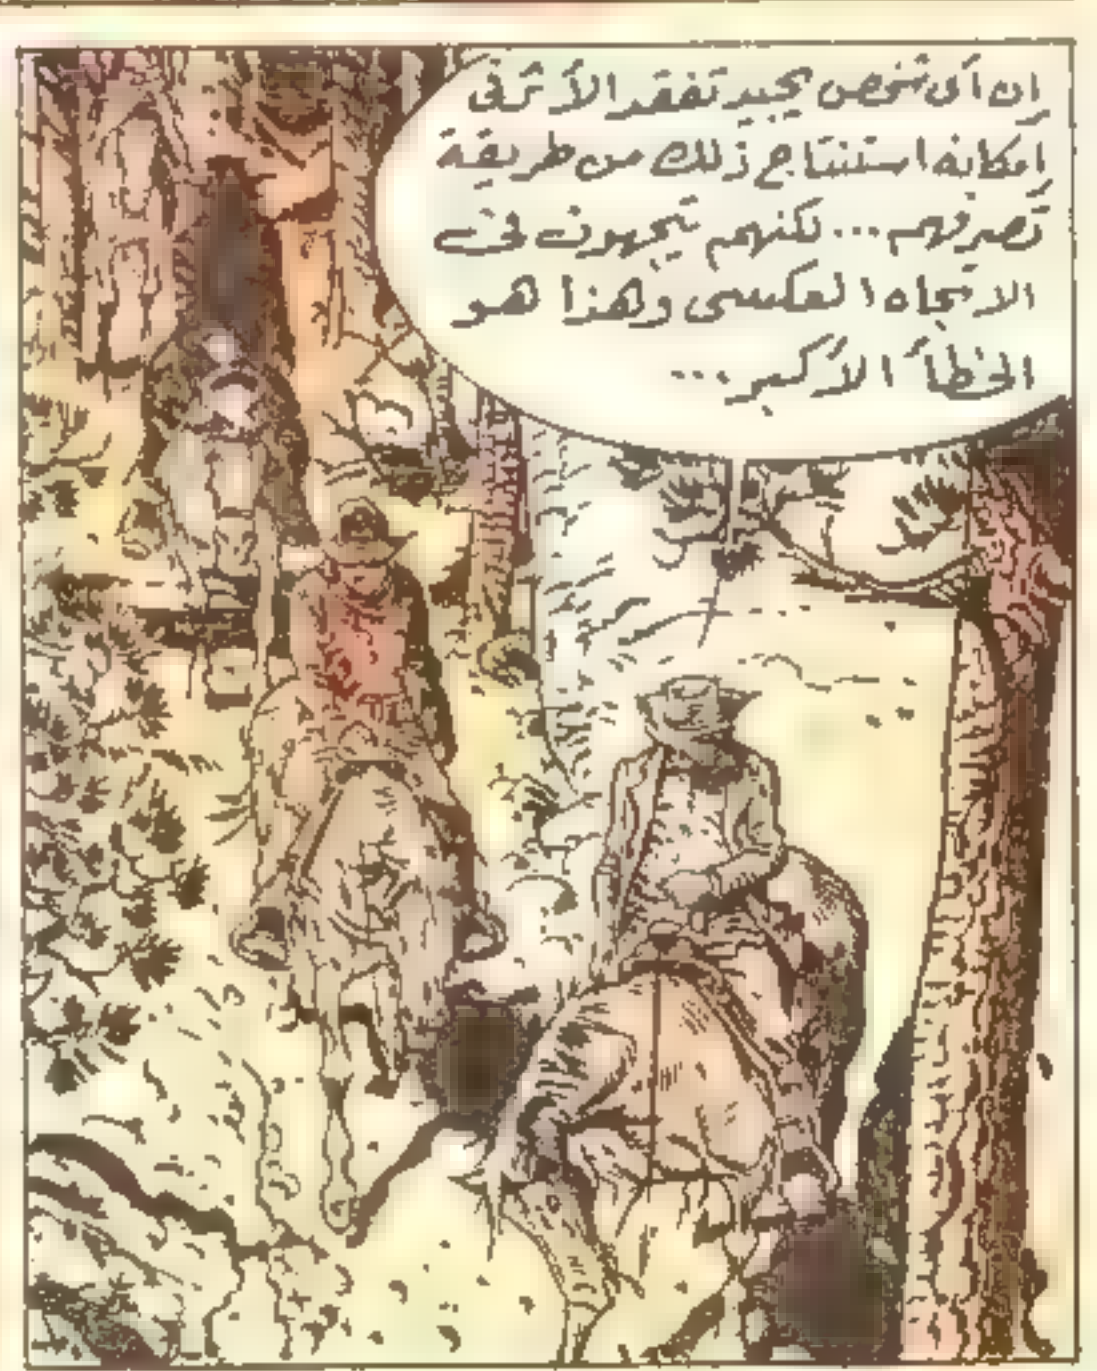 إن أى شخص يجيد تفقد الأثر فى
إمكانه استنتاج ذلك من طريقة
تصرفهم... لكنهم يتجهون فى
الاتجاه العكسى وهذا هو
الخطأ الأكبر...